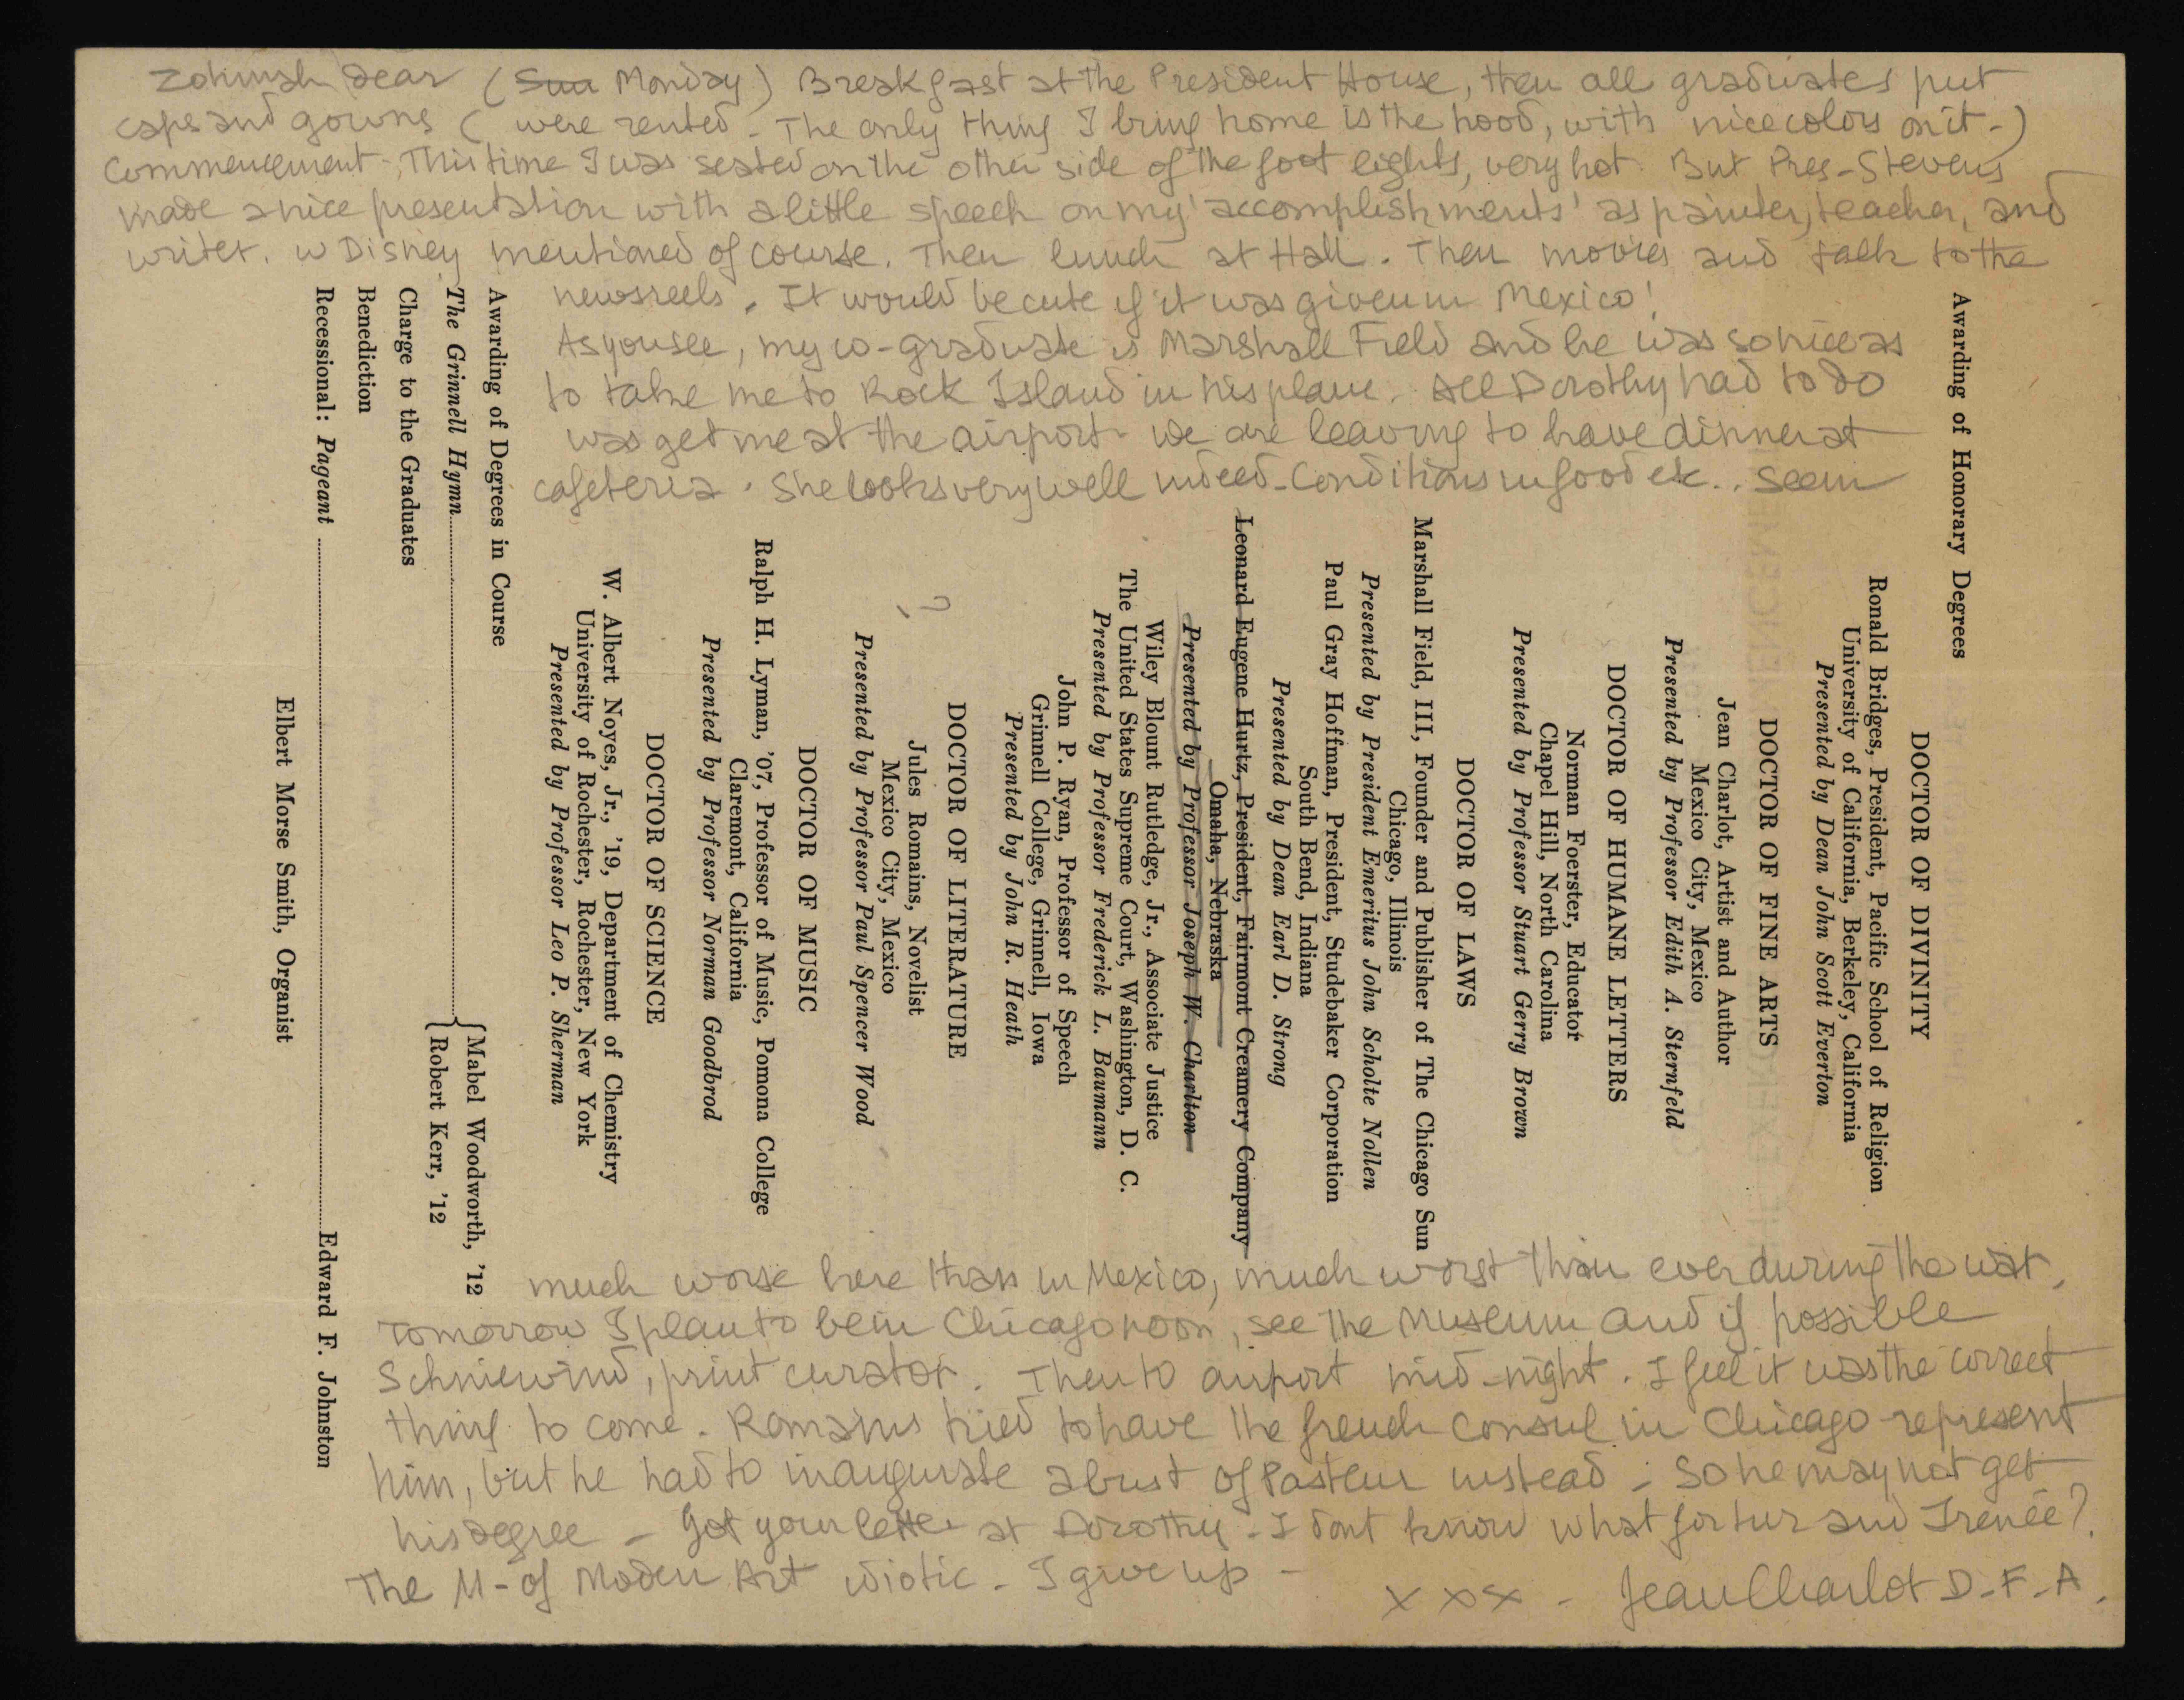 Zohmah dear (Sun Monday) Breakfast at the President House, then all graduates put
caps and gowns (were rented - The only thing I bring home is the hood, with nice colors on it -)
Commencement - This time I was seated on the other side of the foot lights, very hot. But Pres - Stevens
made a nice presentation with a little speech on my 'accomplishments' as painter, teacher, and
writer. W Disney mentioned of course. Then lunch at Hall. Then movies and talk to the
newsreels. It would be cute if it was given in Mexico!
As you see, my co-graduate is Marshall Field and he was so nice as
to take me to Rock Island in his plane. All Dorothy had to do
was get me at the airport - We are leaving to have dinner at
cafeteria. She looks very well indeed - Conditions in food etc.. seem
much worse here than in Mexico, much worst than ever during the war.
Tomorrow I plan to be in Chicago noon, see the Museum and if possible
Schniewind, print curator. Then to airport mid-night. I feel it was the correct
thing to come. Romains tried to have the french consul in Chicago represent
him, but he had to inaugurate a bust of Pasteur instead - So he may not get
his degree - Got your letter at Dorothy - I dont know what for hur and Irenée?
The M - of Modern Art idiotic - I give up -
x x x - Jean Charlot D-F-A.
Awarding of Honorary Degrees
DOCTOR OF DIVINITY
Ronald Bridges, President, Pacific School of Religion
University of California, Berkeley, California
Presented by Dean John Scott Everton
DOCTOR OF FINE ARTS
Jean Charlot, Artist and Author
Mexico City, Mexico
Presented by Professor Edith A. Sternfeld
DOCTOR OF HUMANE LETTERS
Norman Foerster, Educator
Chapel Hill, North Carolina
Presented by Professor Stuart Gerry Brown
DOCTOR OF LAWS
Marshall Field, III, Founder and Publisher of The Chicago Sun
Chicago, Illinois
Presented by President Emeritus John Scholte Nollen
Paul Gray Hoffman, President, Studebaker Corporation
South Bend, Indiana
Presented by Dean Earl D. Strong
Leonard Eugene Hurtz, President, Fairmont Creamery Company
Omaha, Nebraska
Presented by Professor Joseph W. Charlton
Wiley Blount Rutledge, Jr., Associate Justice
The United States Supreme Court, Washington, D. C.
Presented by Professor Frederick L. Baumann
John P. Ryan, Professor of Speech
Grinnell College, Grinnell, Iowa
Presented by John R. Heath
DOCTOR OF LITERATURE
Jules Romains, Novelist
Mexico City, Mexico
Presented by Professor Paul Spencer Wood
DOCTOR OF MUSIC
Ralph H. Lyman, '07, Professor of Music, Pomona College
Claremont, California
Presented by Professor Norman Goodbrod
DOCTOR OF SCIENCE
W. Albert Noyes, Jr., '19, Department of Chemistry
University of Rochester, Rochester, New York
Presented by Professor Leo P. Sherman
Awarding of Degrees in Course
The Grinnell Hymn { Mabel Woodworth, '12
Robert Kerr, '12
Charge to the Graduates
Benediction
Recessional: Pageant Edward F. Johnston
Elbert Morse Smith, Organist